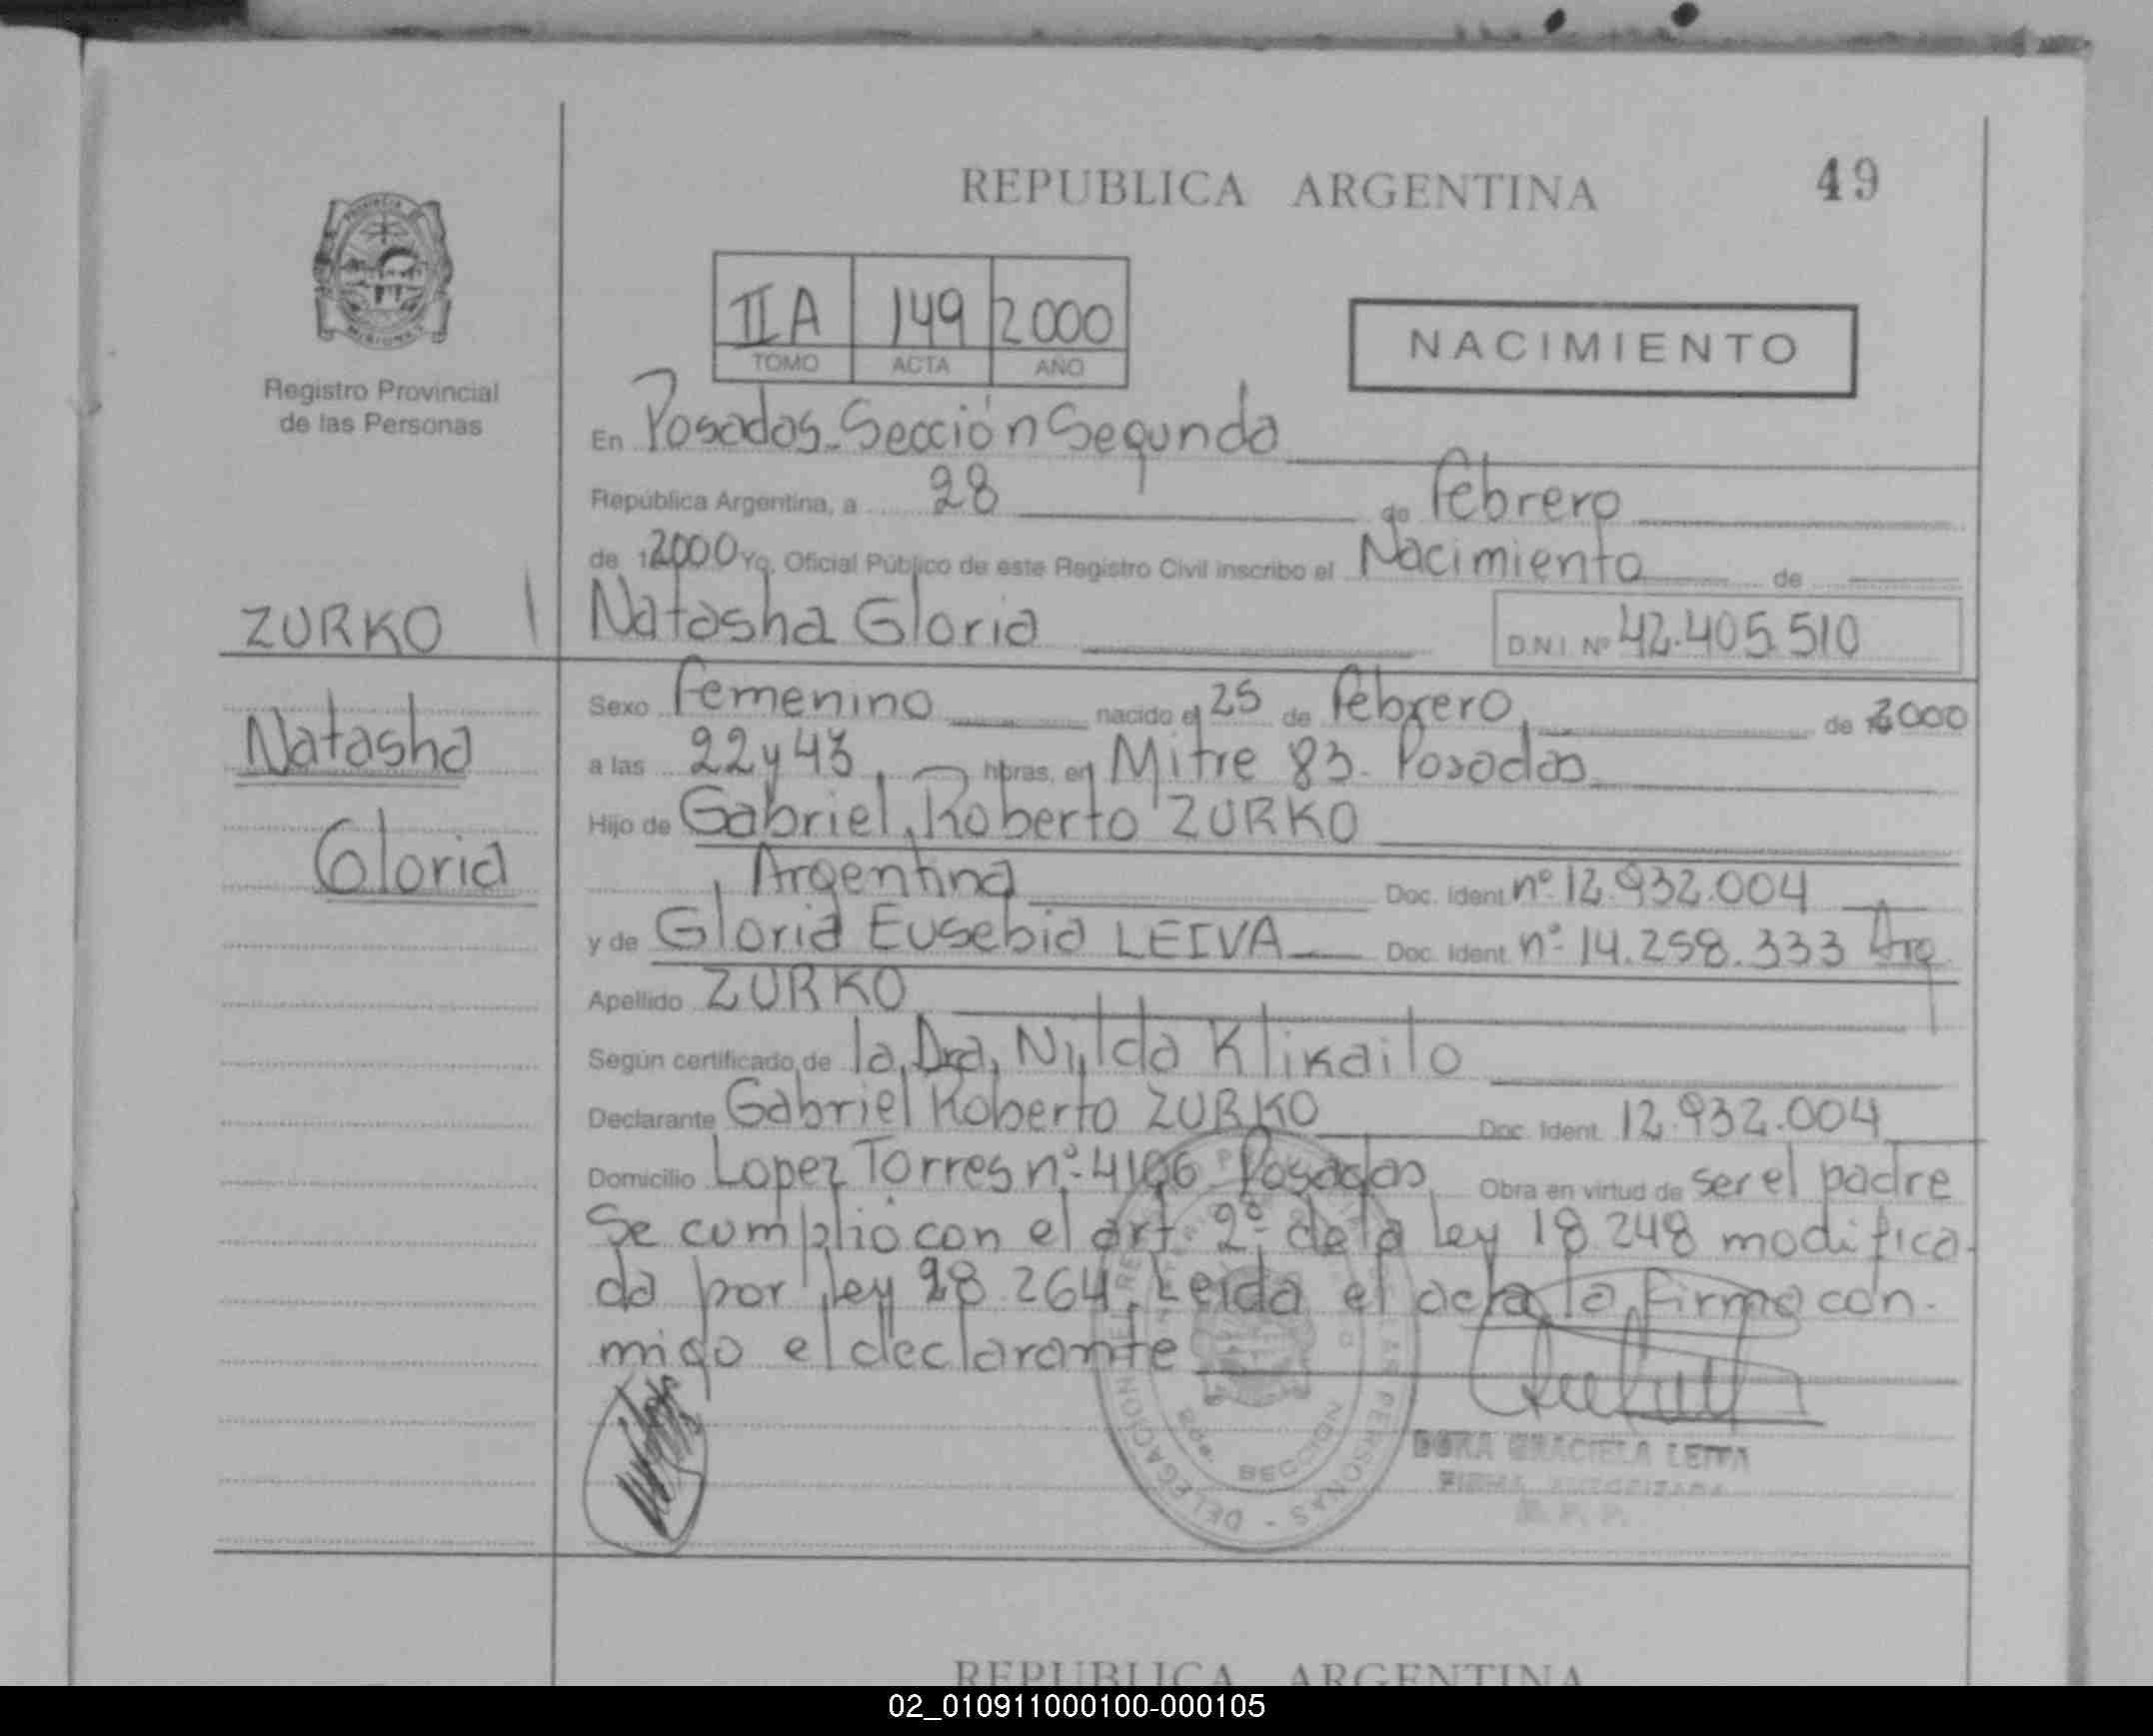 REPUBLICA ARGENTINA
49
PROVINCIA DE
MISIONES
Registro Provincial
de las Personas
II A 149 2000
TOMO ACTA AÑO
NACIMIENTO
En Posadas-Sección Segunda
República Argentina, a 28 de febrero
de 2000 Yo, Oficial Público de este Registro Civil inscribo el Nacimiento de
ZURKO
Natasha Gloria
D.N.I. Nº 42.405.510
Natasha
Gloria
Sexo femenino nacido el 25 de febrero, de 2000
a las 22 y 43, horas, en Mitre 83. Posadas
Hijo de Gabriel Roberto ZURKO
Argentina Doc. Ident nº 12.932.004
y de Gloria Eusebia LEIVA Doc. Ident nº 14.258.333 Arg
Apellido ZURKO
Según certificado de la Dra, Nilda Klikailo
Declarante Gabriel Roberto ZURKO Doc. Ident. 12.932.004
Domicilio Lopez Torres nº Posadas Obra en virtud de ser el padre
Se cumplió con el art 2º de la ley 18 248 modifica-
da por ley Leida el acta la firma con-
migo el declarante
SECCION
DELEGACION
PERSONAS
DORA GRACIELA
FIRMA AUTORIZADA
R. P. P.
REPUBLICA ARGENTINA
02_010911000100-000105